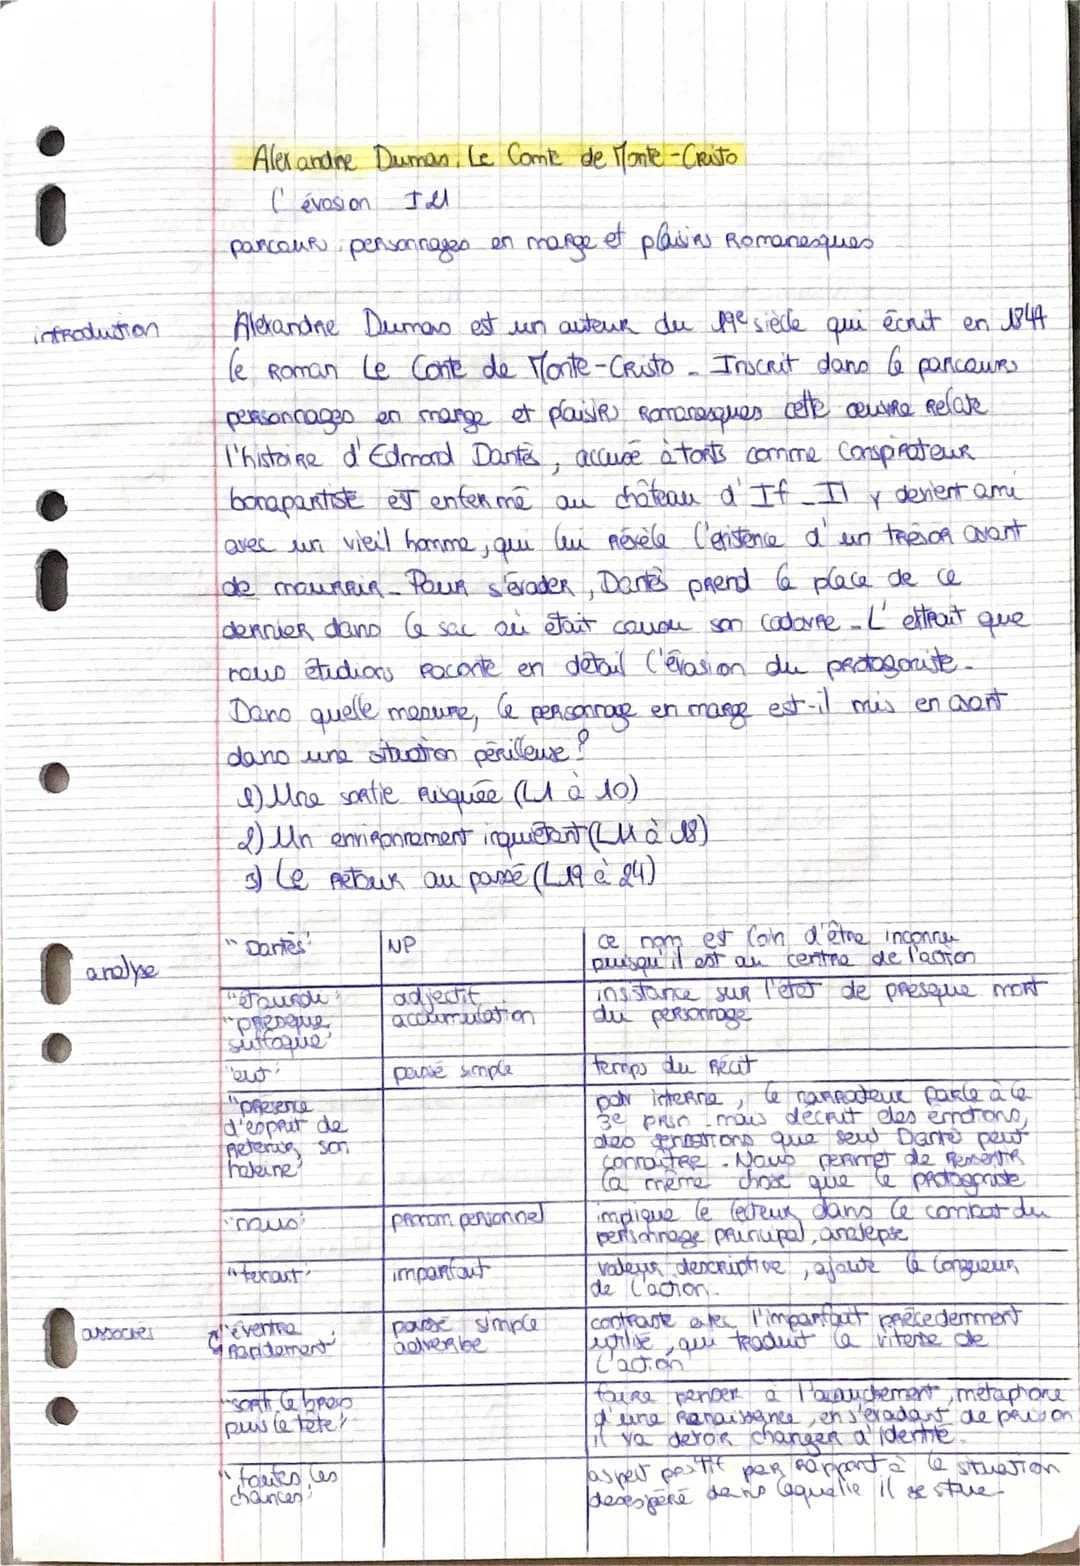 Alexandre Dumas, Le Comte de Monte-Cristo
l'évasion I 21
parcours : personnages en marge et plaisirs Romanesques
introduction
Alexandre Dumas est un auteur du 19e siècle qui écrit en 1844
le Roman Le Comte de Monte-Cristo. Inscrit dans le parcours
personnages en marge et plaisirs Romanesques cette œuvre Relate
l'histoire d'Edmond Dantès, accusé à torts comme conspirateur
bonapartiste est enfermé au château d'If. Il y devient ami
avec un vieil homme, qui lui révèle l'existence d'un trésor avant
de mourrir. Pour s'évader, Dantès prend la place de ce
dernier dans le sac où était cousu son cadavre. L'extrait que
nous étudions raconte en détail l'évasion du protagoniste.
Dans quelle mesure, le personnage en marge est-il mis en avant
dans une situation périlleuse ?
1) Une sortie risquée (L1 à 10)
2) Un environnement inquiétant (L11 à 18)
3) Le retour au passé (L19 à 24)
analyse
"Dantès" NP ce nom est loin d'être inconnu
puisqu'il est au centre de l'action
"étourdi" adjectif insistance sur l'état de presque mort
"presque accumulation du personnage
suffoqué"
"eut" passé simple temps du Récit
"présence pdv interne, le narrateur parle à la
d'esprit de 3e prsn mais décrit des émotions,
retenir son des sensations que seul Dantès peut
haleine" connaître. Nous permet de ressentir
la même chose que le protagoniste
"nous" pronom personnel implique le lecteur dans le combat du
personnage principal, analepse
"tenait" imparfait valeur descriptive, ajoute la longueur
de l'action.
associés
"éventra passé simple contraste avec l'imparfait précedemment
rapidement" adverbe utilisé, qui traduit la vitesse de
l'action
"sortit le bras faire penser à l'accouchement, métaphore
puis la tête" d'une Renaissance, en s'évadant de prison
il va devoir changer d'identité.
"toutes les aspect positif par rapport à la situation
chances" désespéré dans laquelle il se situe.